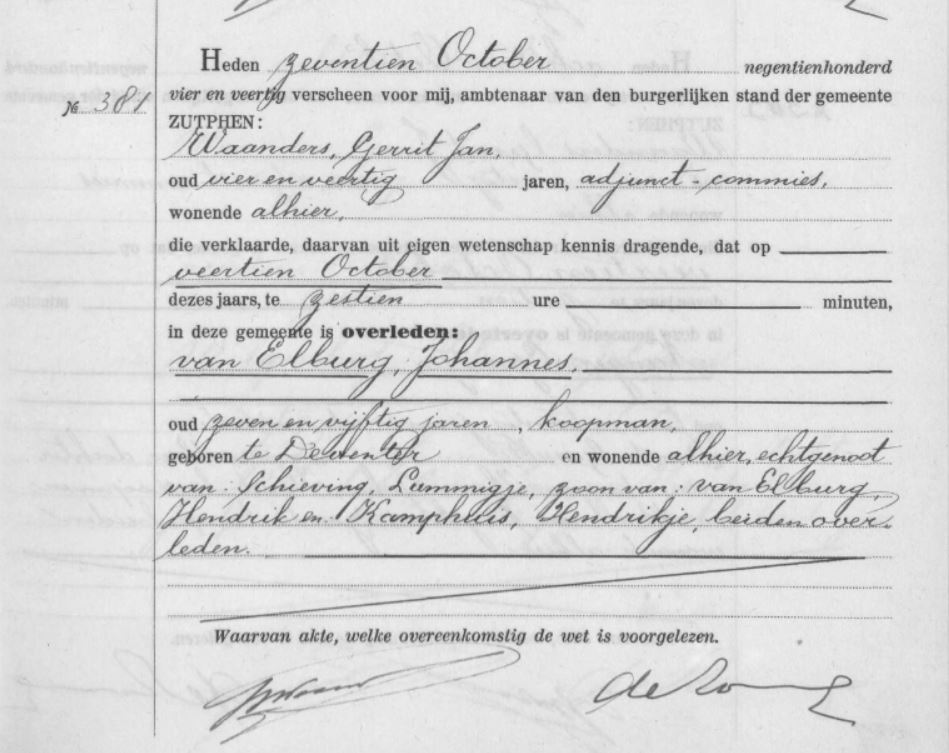 Heden zeventien October negentienhonderd
vier en veertig verscheen voor mij, ambtenaar van den burgerlijken stand der gemeente
№ 381
ZUTPHEN:
Waanders, Gerrit Jan,
oud vier en veertig jaren, adjunct-commies,
wonende alhier,
die verklaarde, daarvan uit eigen wetenschap kennis dragende, dat op
veertien October
dezes jaars, te zestien ure minuten,
in deze gemeente is overleden:
van Elburg, Johannes,
oud zeven en vijftig jaren, koopman,
geboren te Deventer en wonende alhier, echtgenoot
van: Schieving, Lummigje, zoon van: van Elburg,
Hendrik en Kamphuis, Hendrikje, beiden over-
leden.
Waarvan akte, welke overeenkomstig de wet is voorgelezen.